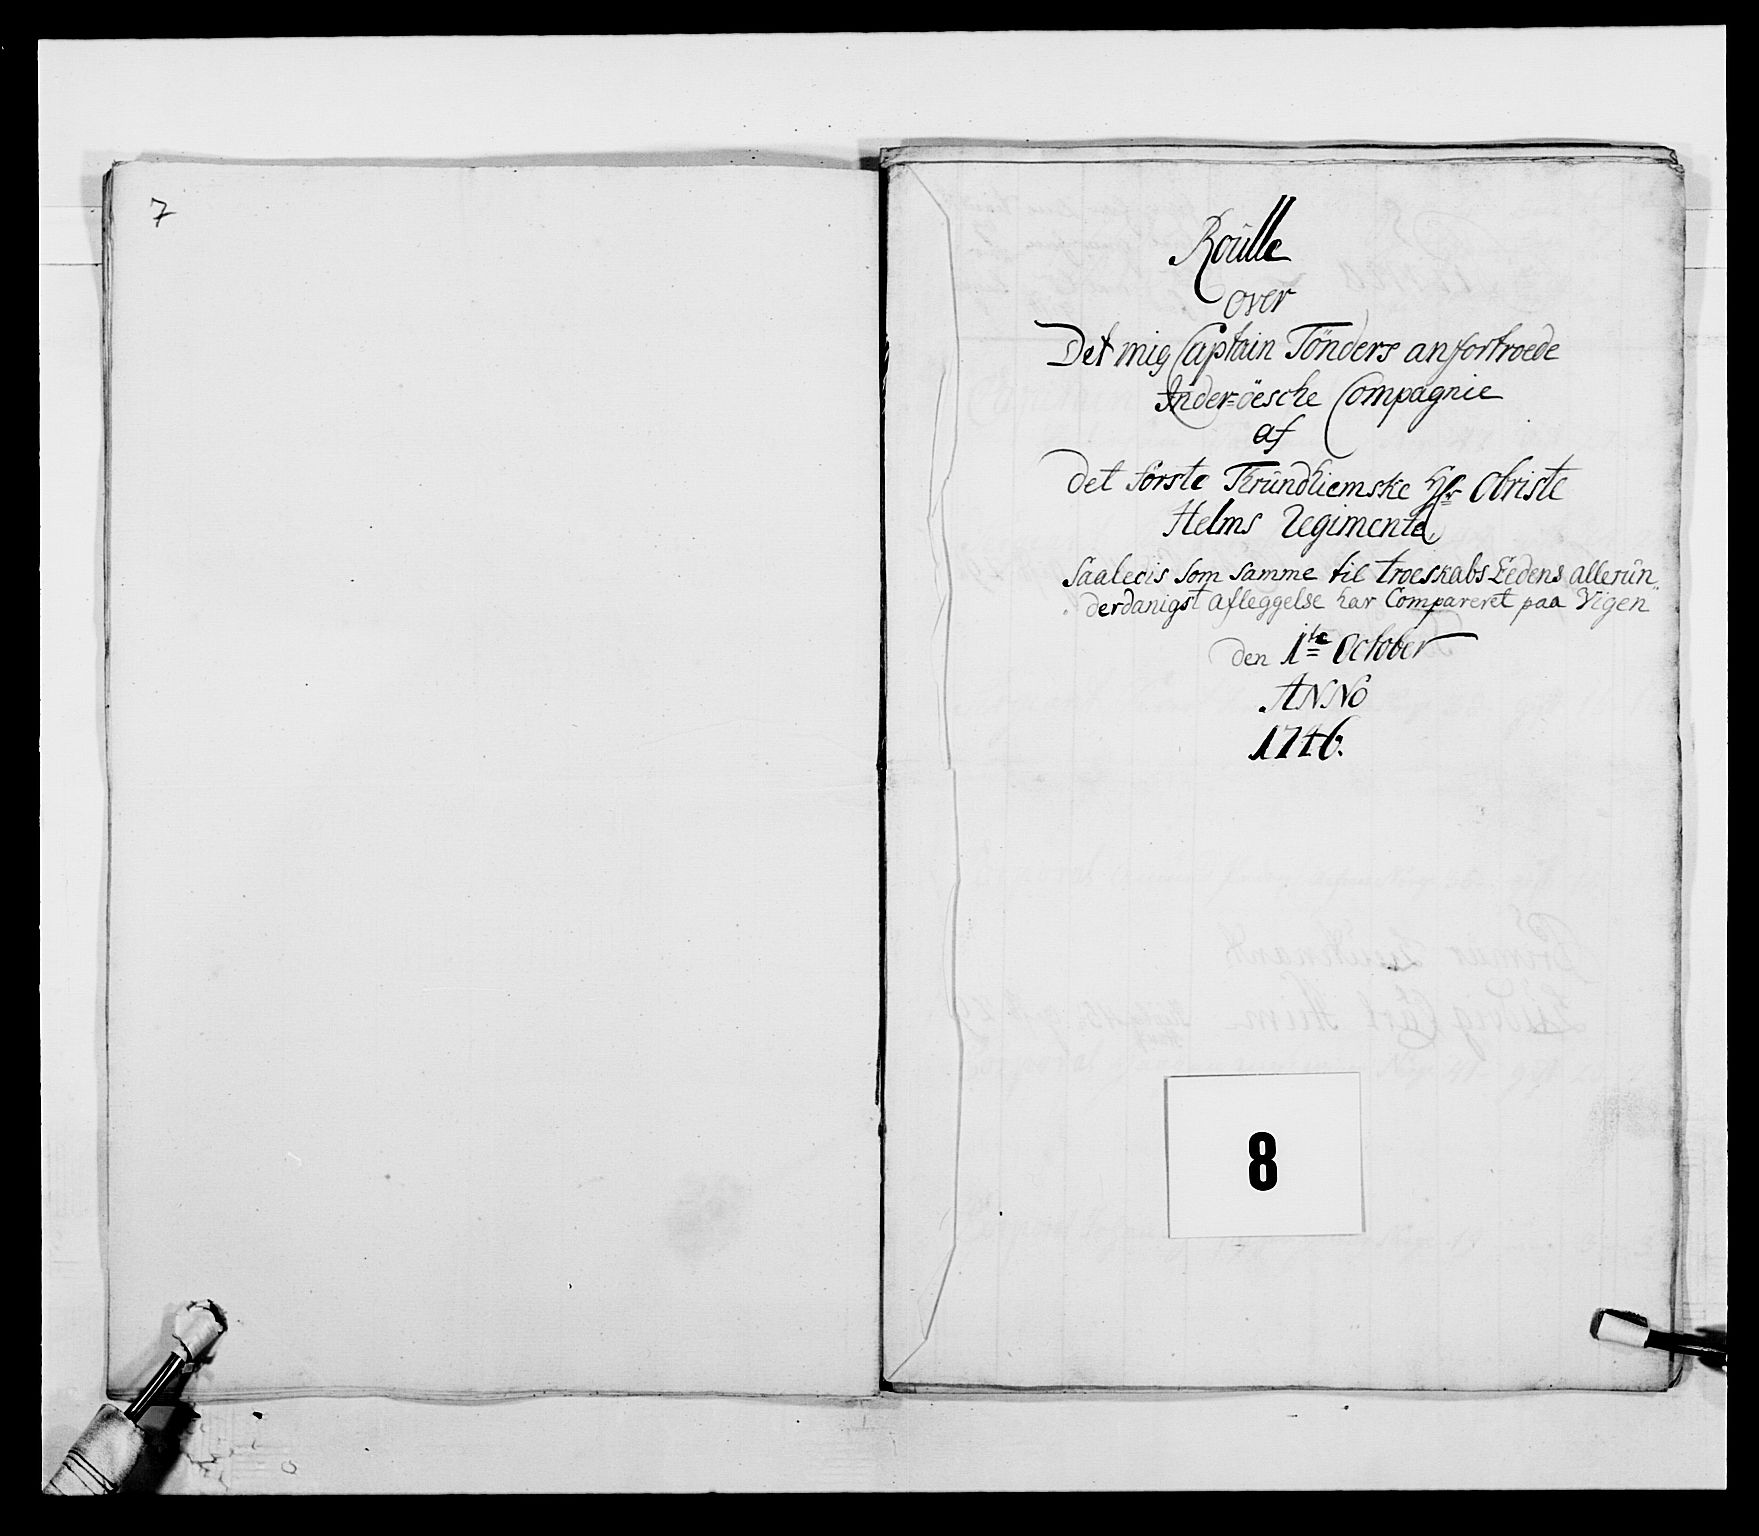 7
Roülle
over
Det mig Captain Tönders anfortroede
Inder=öesche Compagnie
af
Det förste Trundhiemske Hr Obriste
Helms Regimente,
Saaledis som samme til troeskabs Eedens allerün
derdanigst afleggelse har Compareret paa Vigen
den 1te October
ANNO
1746.
8